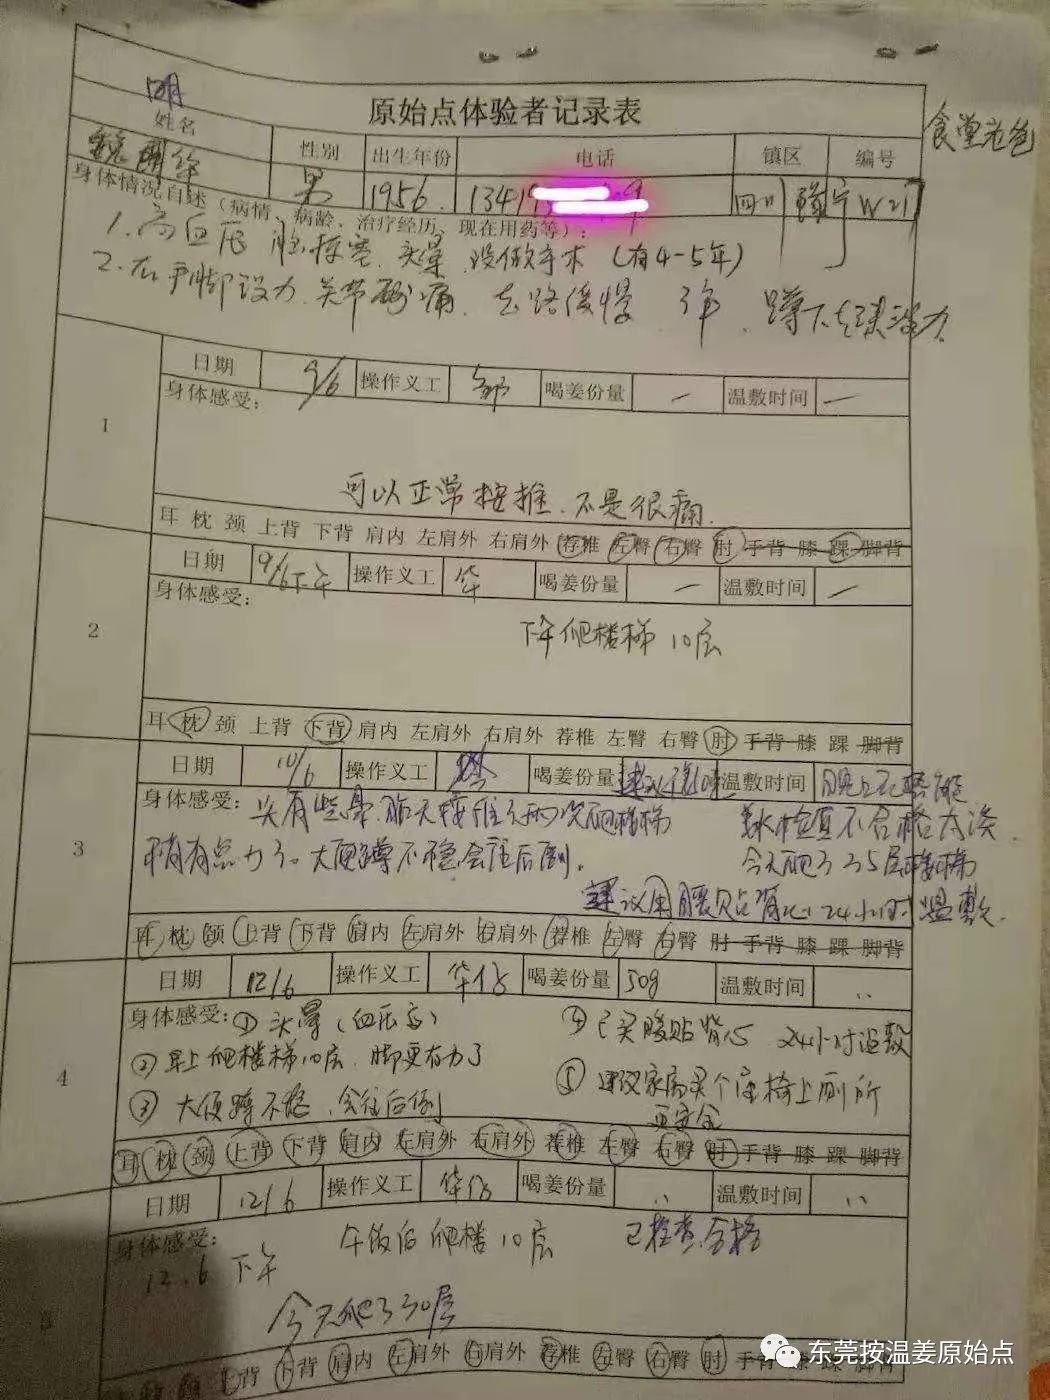 原始点体验者记录表
食堂老爸
明
姓名 性别 出生年份 电话 镇区 编号
男 1956. 四川 W21
身体情况自述(病情、病龄、治疗经历、现在用药等):
1.高血压 脑梗塞.头晕.没做手术(有4-5年)
2.右手脚没力.关节 痛.走路缓慢 3年.蹲下起来没力
1
日期 9/6 操作义工 邹 喝姜份量 一 温敷时间 一
身体感受:
可以正常按推.不是很痛.
耳 枕 颈 上背 下背 肩内 左肩外 右肩外 荐椎 左臀 右臀 肘 手背 膝 踝 脚背
2
日期 9/6下午 操作义工 华 喝姜份量 一 温敷时间 一
身体感受:
下午爬楼梯 10层
耳 枕 颈 上背 下背 肩内 左肩外 右肩外 荐椎 左臀 右臀 肘 手背 膝 踝 脚背
3
日期 10/6 操作义工 喝姜份量 温敷时间
身体感受: 头有些晕. 姜水检查不合格太淡.
稍有点力了.大便蹲不稳.会往后倒. 今天爬了35层楼梯
建议用暖贴背心24小时温敷.
耳 枕 颈 上背 下背 肩内 左肩外 右肩外 荐椎 左臀 右臀 肘 手背 膝 踝 脚背
4
日期 12/6 操作义工 喝姜份量 50g 温敷时间 ..
身体感受: ①头晕(血压高) ④已买暖贴背心 24小时温敷
②早上爬楼梯10层.脚更有力了 ⑤建议家属买个座椅上厕所
③大便蹲不稳.会往后倒 更安全
耳 枕 颈 上背 下背 肩内 左肩外 右肩外 荐椎 左臀 右臀 肘 手背 膝 踝 脚背
日期 12/6 操作义工 喝姜份量 .. 温敷时间 ..
身体感受: 午饭后爬楼10层 已检查合格
12.6 下午
今天爬了30层
上背 下背 肩内 左肩外 右肩外 荐椎 左臀 右臀 肘 手背 膝 踝 脚背
东莞按温姜原始点